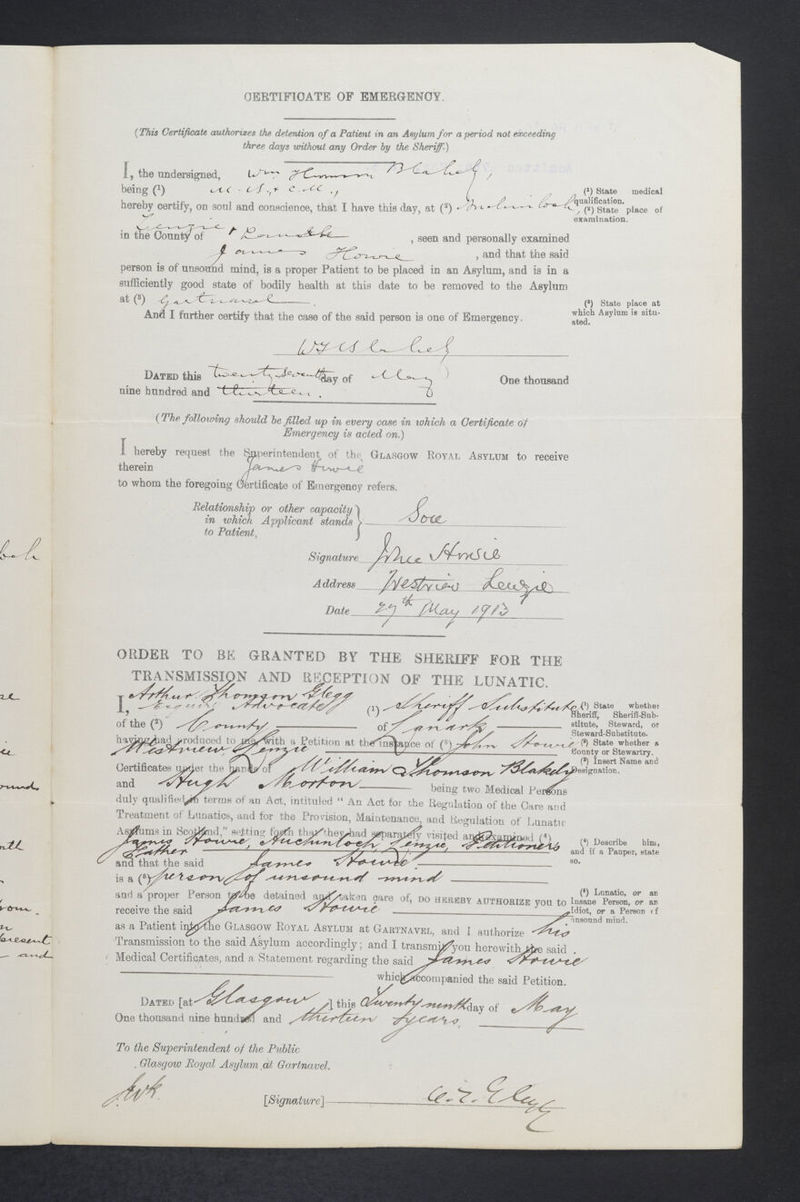 CERTIFICATE OF EMERGENCY.
(This Certificate authorizes the detention of a Patient in an Asylum for a period not exceeding
three days without any Order by the Sheriff.)
I, the undersigned, Wm Thomson Blakely,
being (1) M.B., & C.M.,
(1) State medical
qualification.
hereby certify, on soul and conscience, that I have this day, at (2) Auchinloch,
(2) State place of
examination.
Lenzie
in the County of Lanark , seen and personally examined
James Howie , and that the said
person is of unsound mind, is a proper Patient to be placed in an Asylum, and is in a
sufficiently good state of bodily health at this date to be removed to the Asylum
at (3) Gartnavel.
(3) State place at
which Asylum is situ-
ated.
And I further certify that the case of the said person is one of Emergency.
W T Blakely
DATED this twenty seventh day of May One thousand
nine hundred and thirteen.
(The following should be filled up in every case in which a Certificate of
Emergency is acted on.)
I hereby request the Superintendent of the GLASGOW ROYAL ASYLUM to receive
therein James Howie
to whom the foregoing Certificate of Emergency refers.
Relationship or other capacity
in which Applicant stands
to Patient,
Son
Signature John Howie
Address Westview Lenzie
Date 27th May 1913
ORDER TO BE GRANTED BY THE SHERIFF FOR THE
TRANSMISSION AND RECEPTION OF THE LUNATIC.
Arthur Thomson Glegg
I, Esquire Advocate (1) Sheriff Substitute
(1) State whether
Sheriff, Sheriff-Sub-
stitute, Steward, or
Steward-Substitute.
of the (2) County of Lanark
(2) State whether a
County or Stewartry.
having had produced to me with a Petition at the instance of (3) John Howie
Westview Lenzie
(3) Insert Name and
Designation.
Certificates under the hands of William Thomson Blakely
and Hugh Morton being two Medical Persons
duly qualified in terms of an Act, intituled "An Act for the Regulation of the Care and
Treatment of Lunatics, and for the Provision, Maintenance, and Regulation of Lunatic
Asylums in Scotland," setting forth that they had separately visited and examined (4)
James Howie, Auchinloch, Lenzie, Petitioners
Father
(4) Describe him,
and if a Pauper, state
so.
and that the said James Howie
is a (5) person of unsound mind
(5) Lunatic, or an
Insane Person, or an
Idiot, or a Person of
unsound mind.
and a proper Person to be detained and taken care of, DO HEREBY AUTHORIZE you to
receive the said James Howie
as a Patient into the GLASGOW ROYAL ASYLUM at GARTNAVEL, and I authorize his
Transmission to the said Asylum accordingly; and I transmit you herewith the said
Medical Certificates, and a Statement regarding the said James Howie
which accompanied the said Petition.
DATED [at Glasgow ] this Twenty ninth day of May
One thousand nine hundred and thirteen years.
To the Superintendent of the Public
Glasgow Royal Asylum at Gartnavel.
[Signature] A. T. Glegg